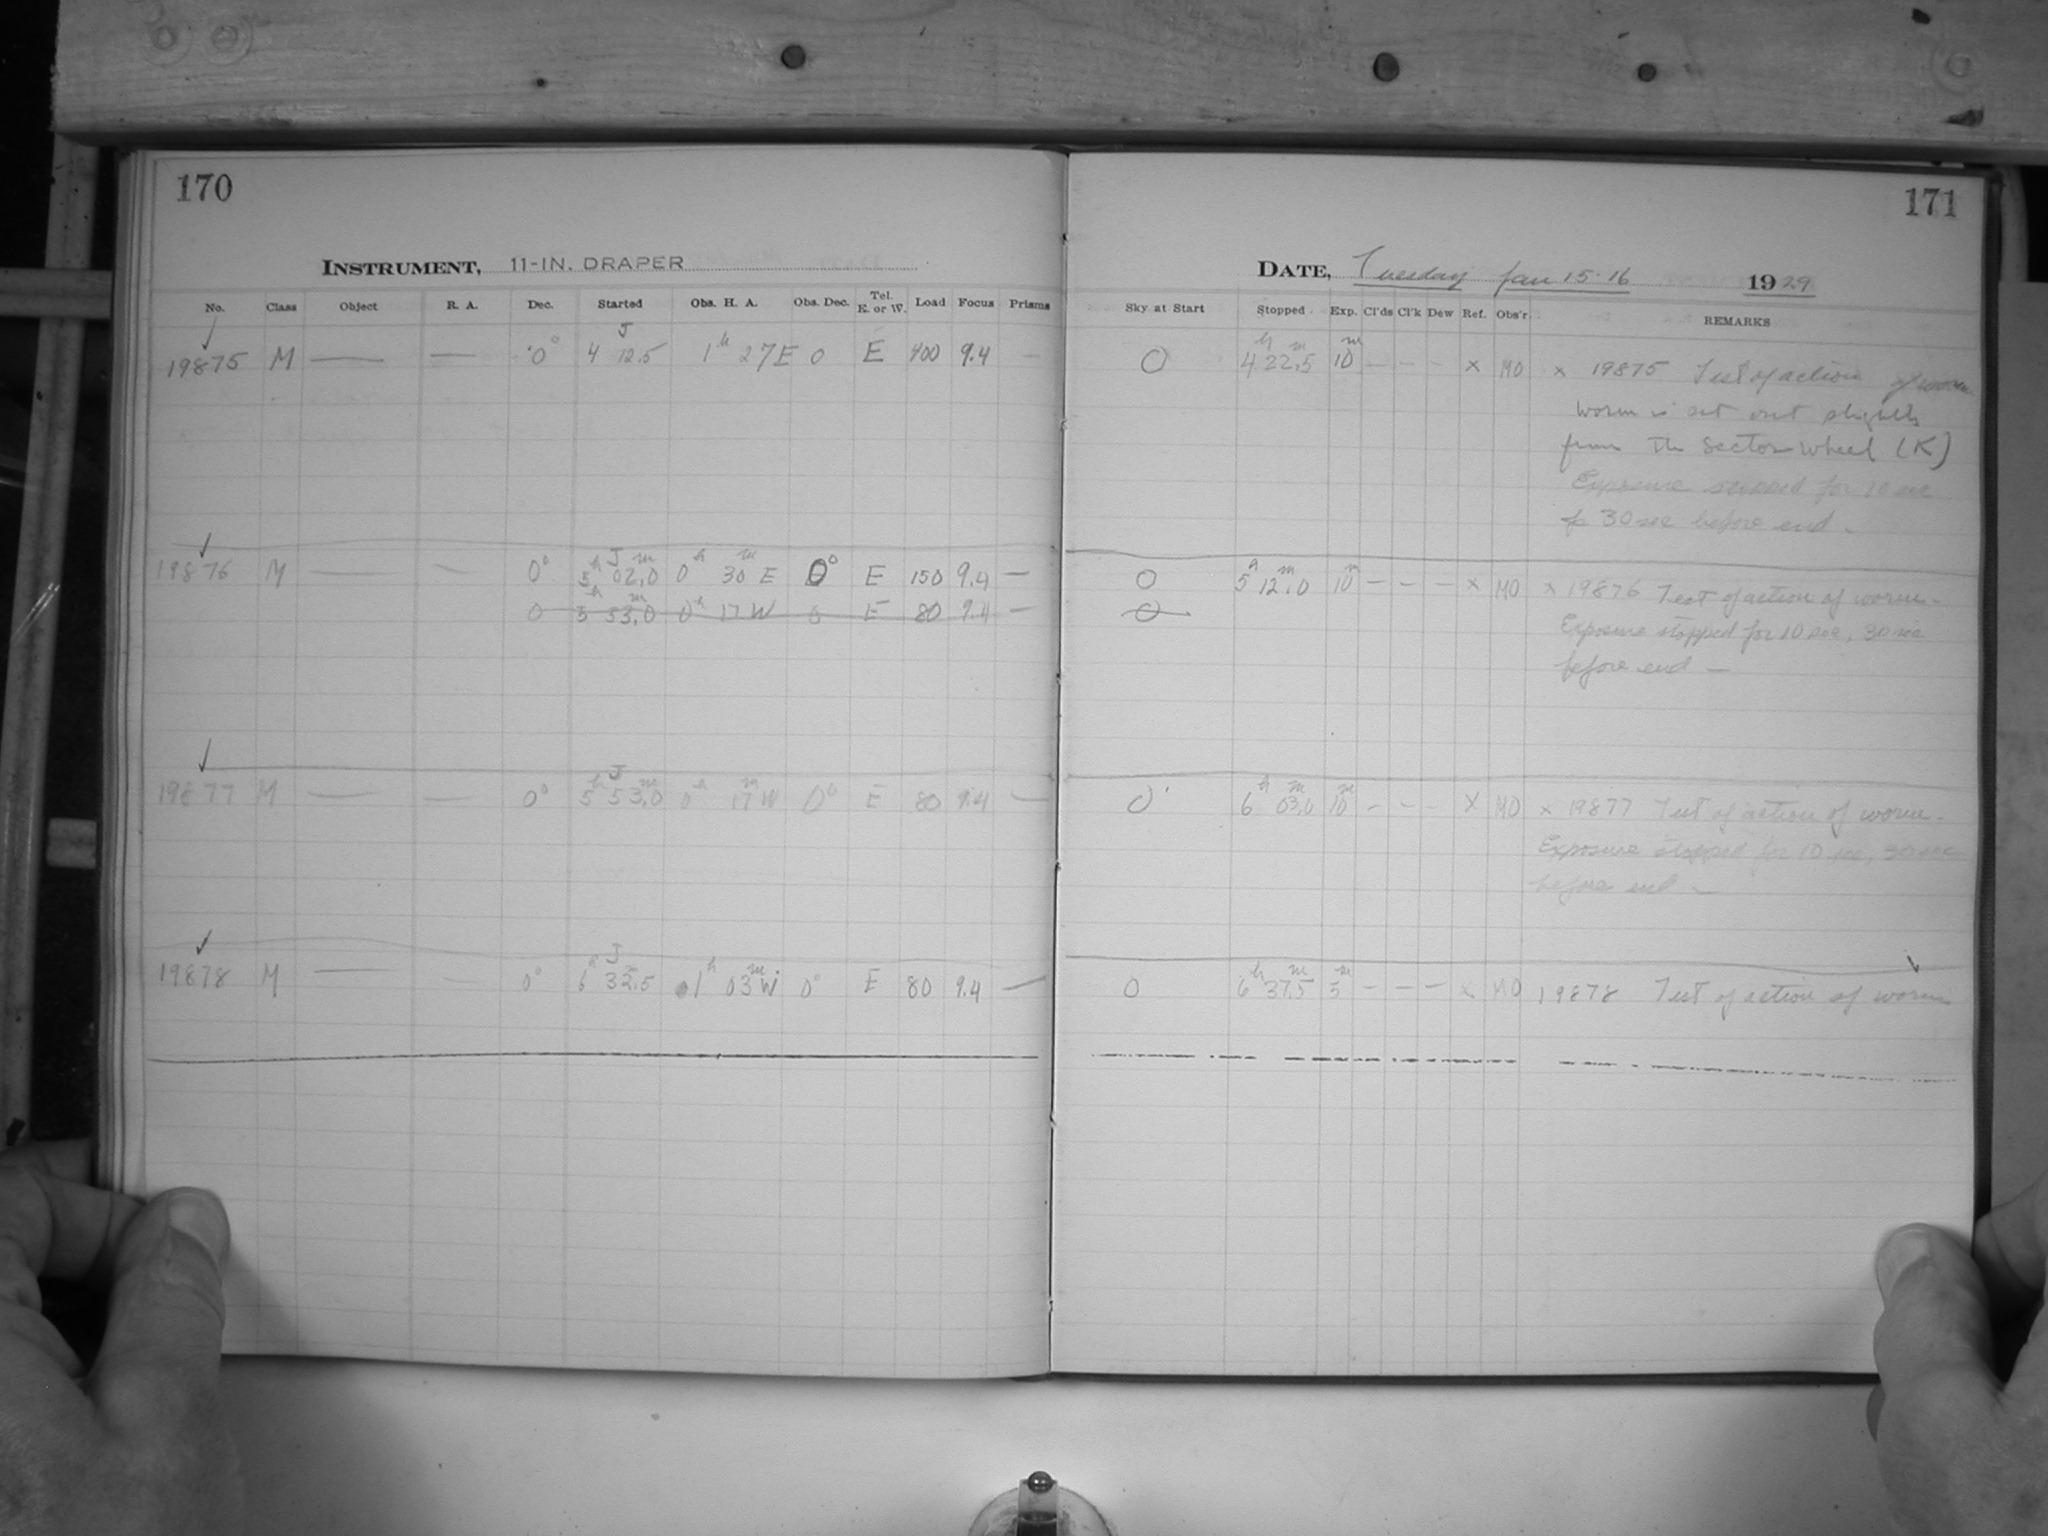 170
INSTRUMENT, 11-IN. DRAPER
No. Class Object R. A. Dec. Started Obs. H. A. Obs. Dec. Tel. E. or W. Load Focus Prisms
19875 M — — 0° J 4 12.5 1h 27 E 0 E 400 9.4 —
19876 M — — 0° J 5h 02.0m 0h 30m E 0° E 150 9.4 —
0 5h 53.0m 0h 17 W 0 E 80 9.4 —
19877 M — — 0° J 5h 53.0m 0h 17m W 0° E 80 9.4 —
19878 M — — 0° J 6h 32.5 01h 03m W 0° E 80 9.4 —
171
DATE, Tuesday Jan 15-16 1929
Sky at Start Stopped Exp. Cl'ds Cl'k Dew Ref. Obs'r. REMARKS
O 4h 22.5m 10m — — — x MO x 19875 Test of action of worm
worm is set out slightly
from the sector wheel (K)
Exposure stopped for 10 sec
30 sec before end —
O 5h 12.0m 10m — — — x MO x 19876 Test of action of worm —
O
Exposure stopped for 10 sec, 30 sec
before end —
O 6h 03.0m 10m — — — x MO x 19877 Test of action of worm —
Exposure stopped for 10 sec, 30 sec
before end —
O 6h 37.5m 5m — — — x MO 19878 Test of action of worm